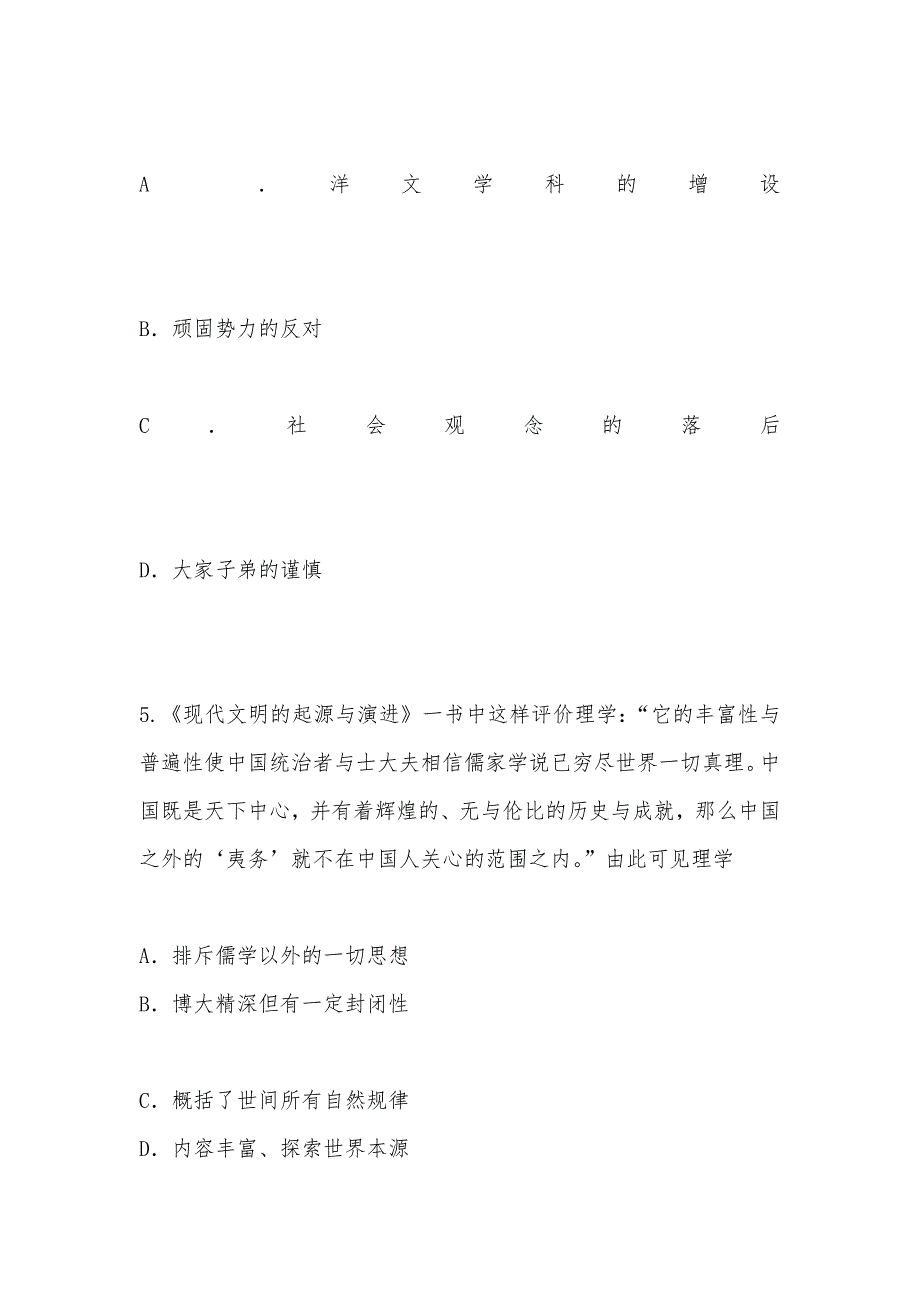 A．洋文学科的增设
B．顽固势力的反对
C．社会观念的落后
D．大家子弟的谨慎
5.《现代文明的起源与演进》一书中这样评价理学：“它的丰富性与
普遍性使中国统治者与士大夫相信儒家学说已穷尽世界一切真理。中
国既是天下中心，并有着辉煌的、无与伦比的历史与成就，那么中国
之外的‘夷务’就不在中国人关心的范围之内。”由此可见理学
A．排斥儒学以外的一切思想
B．博大精深但有一定封闭性
C．概括了世间所有自然规律
D．内容丰富、探索世界本源